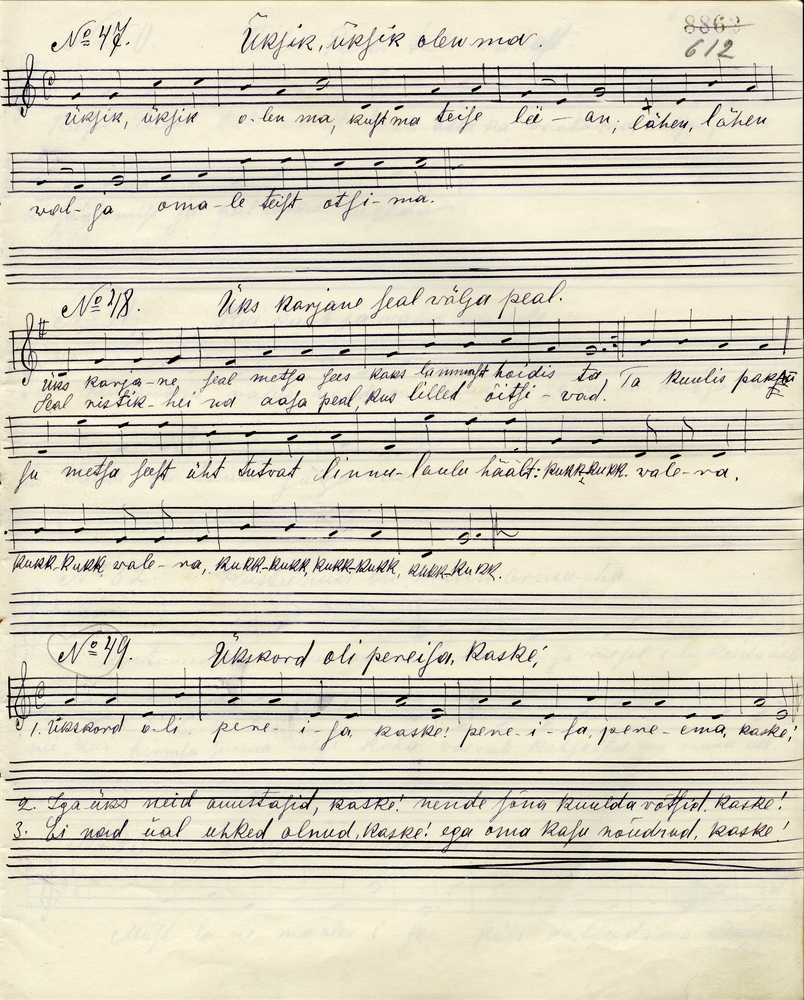 8863
612
№ 47. Üksik, üksik olen ma.
üksik, üksik o-len ma, kust ma teise lei-an; lähen, lähen
wal-ja oma-le teist otsi-ma.
№ 48. Üks karjane seal välja peal.
Üks karja-ne, seal metsa sees kaks lammast hoidis ta, Ta kuulis paksu
Seal ristik-hei na aasa peal, kus lilled õitsi-vad.
su metsa seest üht tutvat linnu-laulu häält: kukk-kukk. wale-ra,
kukk-kukk wale-ra, kukk-kukk, kukk-kukk, kukk-kukk.
№ 49. Ükskord oli pereisa, kaske,
1. Ükskord o-li pere-i-sa, kaske! pere-i-sa, pere-ema, kaske!
2. Iga üks neid auustasid, kaske! nende sõna kuulda võtsid. kaske!
3. Ei nad üal uhked olnud, kaske! ega oma kasu nõudnud, kaske!